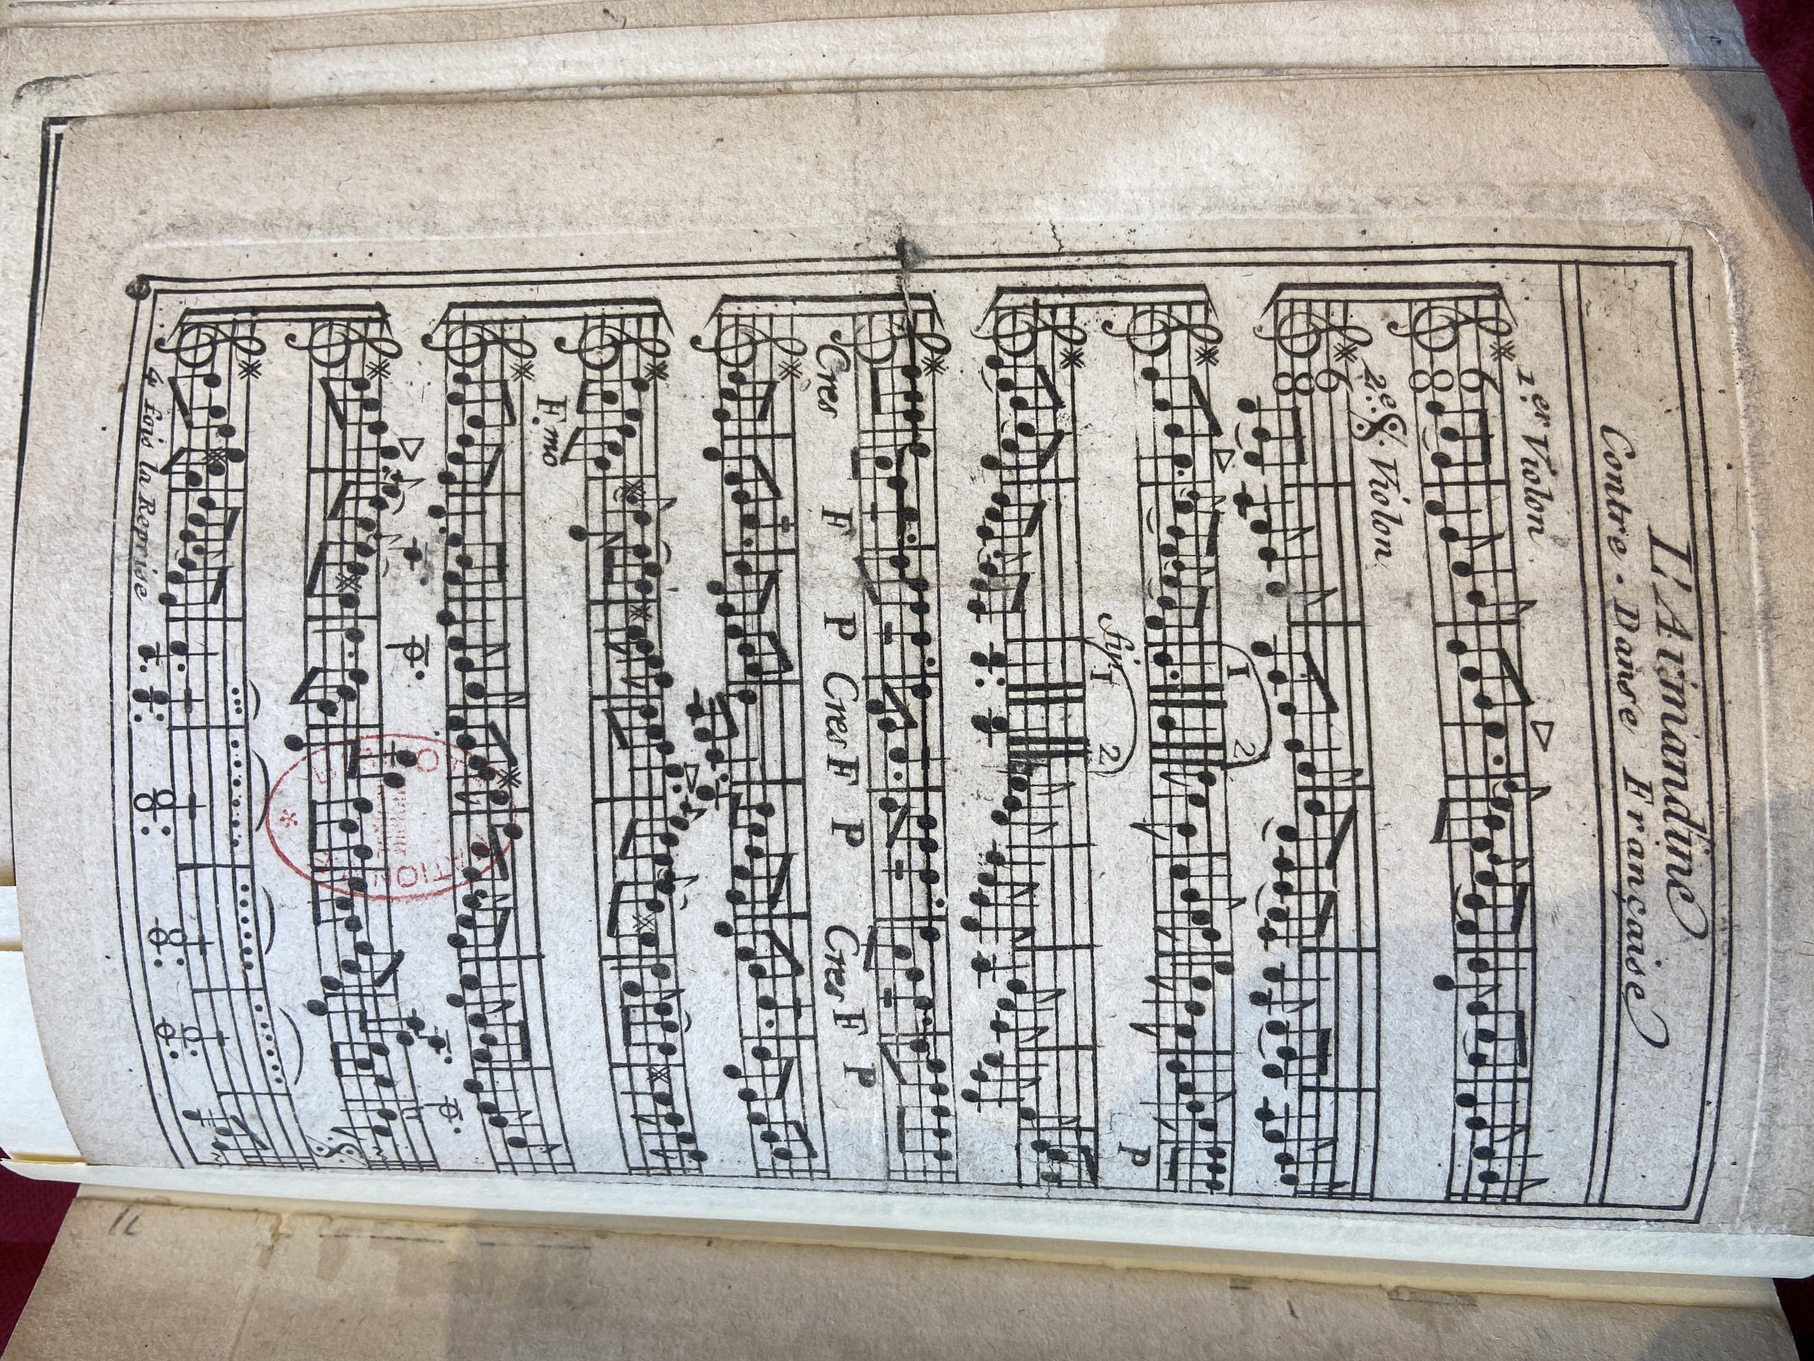 L'Armandine
Contre-Danse Française
1.er Violon
6
8
2e. Violon
6
8
1 2
P
fin 1 2
Cres F P Cres F P Cres F P
F.mo
4 fois la Reprise